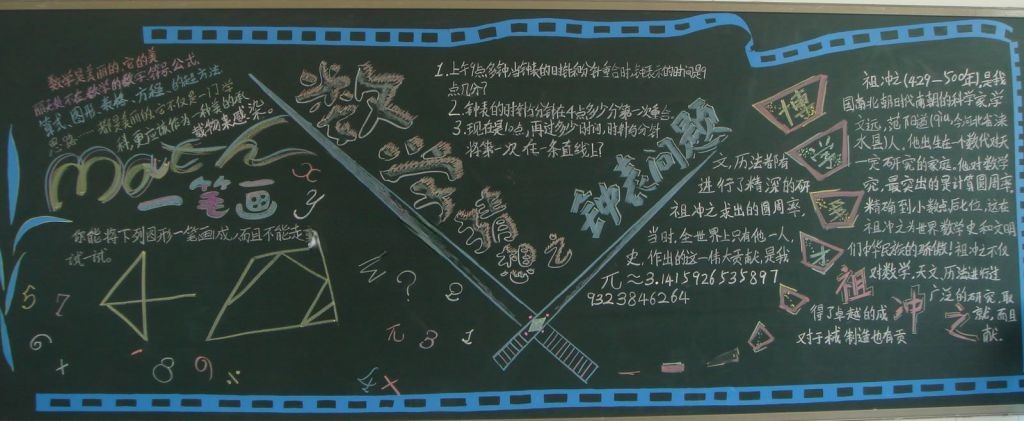 数学是美丽的,它的美
丽表现在数学的数字、符号、公式、
算式、图形、表格、方程、的解方法、
思路……数学美丽的,它不仅是一门学
科,更应该作为一种美的承
载物来感染。
math
一笔画
你能将下列图形一笔画成,而且不能走重
试一试。
数学
之
1.上午9点多钟,当钟表的时针和分针重合时,钟表表示的时间是9
点几分?
2.钟表的时针与分针在4点多少分第一次重合。
3.现在是10点,再过多少时间,时针与分针
将第一次在一条直线上?
钟表问题
博
学
多
才
祖冲之
祖冲之(429-500年),是我
国南北朝时代南朝的科学家,字
文远,范阳遒
水县)人,他出生在一个数代对天
文、历法都有
研究的家庭。他对数学
进行了精深的研
究,最突出的是计算圆周率
祖冲之求出的圆周率,
精确到小数点后七位,这在
当时,全世界上只有他一人,
祖冲之为世界数学史和文明
史,作出的这一伟大贡献,是我
们中华民族的骄傲!祖冲之不仅
π≈3.1415926535897
9323846264
对数学、天文、历法进行过
广泛的研究,取
得了卓越的成
就,而且
对于机械制造也有贡
献.
5 7
6
+
8
9
x
y
π 3 1
?
2